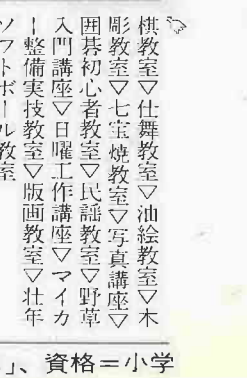 棋教室▽仕舞教室▽油絵教室▽木
彫教室▽七宝焼教室▽写真講座▽
囲碁初心者教室▽民謡教室▽野草
入門講座▽日曜工作講座▽マイカ
ー整備実技教室▽版画教室▽壮年
ソフトボール教室
」、資格＝小学